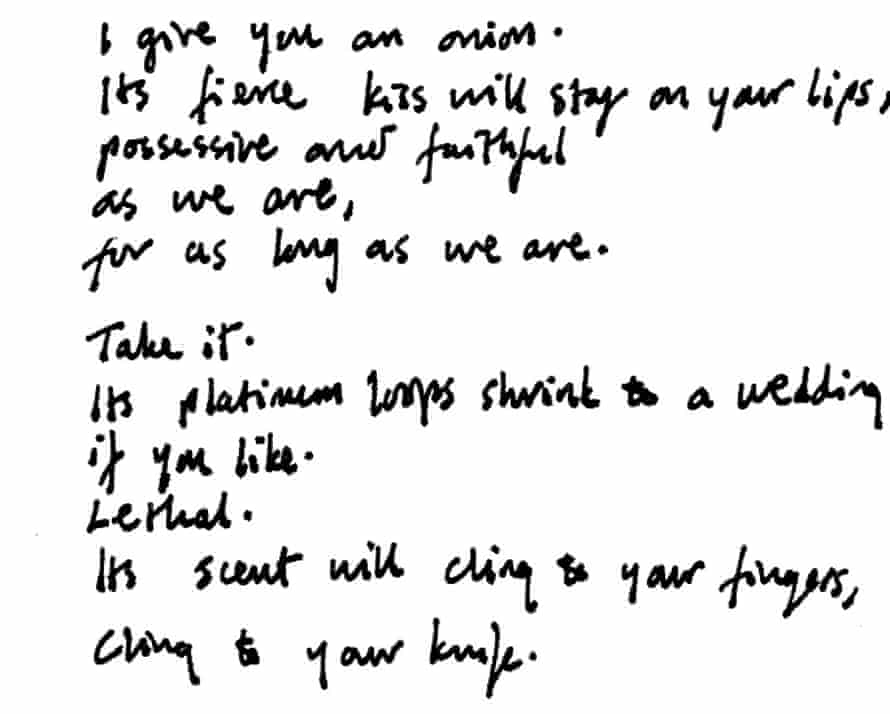 I give you an onion.
Its fierce kiss will stay on your lips,
possessive and faithful
as we are,
for as long as we are.
Take it.
Its platinum loops shrink to a wedding
if you like.
Lethal.
Its scent will cling to your fingers,
cling to your knife.